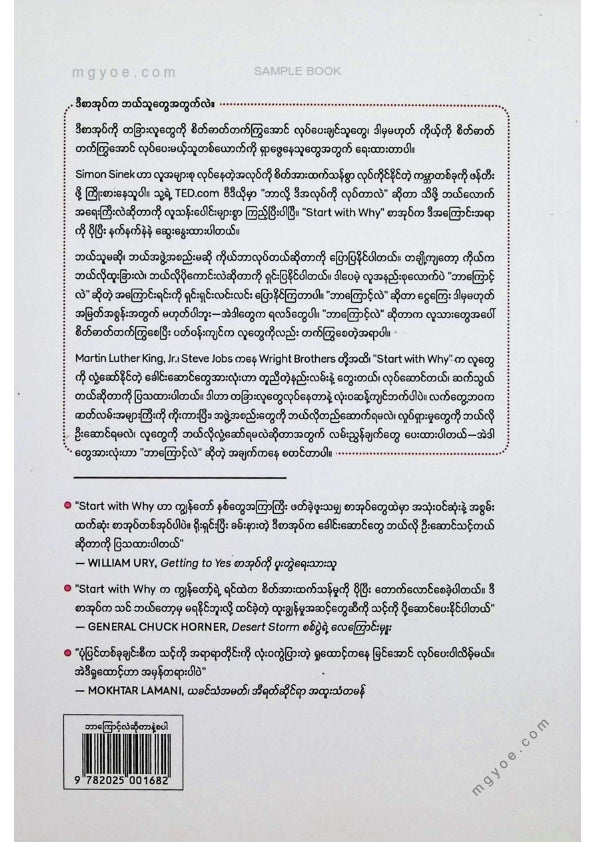 mgyoe.com
SAMPLE BOOK
ဒီစာအုပ်က ဘယ်သူတွေအတွက်လဲ။
ဒီစာအုပ်ကို တခြားလူတွေကို စိတ်ဓာတ်တက်ကြွအောင် လုပ်ပေးချင်သူတွေ၊ ဒါမှမဟုတ် ကိုယ့်ကို စိတ်ဓာတ်
တက်ကြွအောင် လုပ်ပေးမယ့်သူတစ်ယောက်ကို ရှာဖွေနေသူတွေအတွက် ရေးထားတာပါ။
Simon Sinek ဟာ လူအများစု လုပ်နေတဲ့အလုပ်ကို စိတ်အားထက်သန်စွာ လုပ်ကိုင်နိုင်တဲ့ ကမ္ဘာတစ်ခုကို ဖန်တီး
ဖို့ ကြိုးစားနေသူပါ။ သူ့ရဲ့ TED.com ဗီဒီယိုမှာ "ဘာလို့ ဒီအလုပ်ကို လုပ်တာလဲ" ဆိုတာ သိဖို့ ဘယ်လောက်
အရေးကြီးလဲဆိုတာကို လူသန်းပေါင်းများစွာ ကြည့်ပြီးပါပြီ။ "Start with Why" စာအုပ်က ဒီအကြောင်းအရာ
ကို ပိုပြီး နက်နက်နဲနဲ ဆွေးနွေးထားပါတယ်။
ဘယ်သူမဆို၊ ဘယ်အဖွဲ့အစည်းမဆို ကိုယ်ဘာလုပ်တယ်ဆိုတာကို ပြောပြနိုင်ပါတယ်။ တချို့ကျတော့ ကိုယ်က
ဘယ်လိုထူးခြားလဲ၊ ဘယ်လိုပိုကောင်းလဲဆိုတာကို ရှင်းပြနိုင်ပါတယ်။ ဒါပေမဲ့ လူအနည်းစုလောက်ပဲ "ဘာကြောင့်
လဲ" ဆိုတဲ့ အကြောင်းရင်းကို ရှင်းရှင်းလင်းလင်း ပြောနိုင်ကြတာပါ။ "ဘာကြောင့်လဲ" ဆိုတာ ငွေကြေး ဒါမှမဟုတ်
အမြတ်အစွန်းအတွက် မဟုတ်ပါဘူး—အဲဒါတွေက ရလဒ်တွေပါ။ "ဘာကြောင့်လဲ" ဆိုတာက လူသားတွေအပေါ်
စိတ်ဓာတ်တက်ကြွစေပြီး ပတ်ဝန်းကျင်က လူတွေကိုလည်း တက်ကြွစေတဲ့အရာပါ။
Martin Luther King, Jr.၊ Steve Jobs ကနေ Wright Brothers တို့အထိ၊ "Start with Why" က လူတွေ
ကို လှုံ့ဆော်နိုင်တဲ့ ခေါင်းဆောင်တွေအားလုံးဟာ တူညီတဲ့နည်းလမ်းနဲ့ တွေးတယ်၊ လုပ်ဆောင်တယ်၊ ဆက်သွယ်
တယ်ဆိုတာကို ပြသထားပါတယ်။ ဒါဟာ တခြားလူတွေလုပ်နေတာနဲ့ လုံးဝဆန့်ကျင်ဘက်ပါပဲ။ လက်တွေ့ဘဝက
ဇာတ်လမ်းအများကြီးကို ကိုးကားပြီး၊ အဖွဲ့အစည်းတွေကို ဘယ်လိုတည်ဆောက်ရမလဲ၊ လှုပ်ရှားမှုတွေကို ဘယ်လို
ဦးဆောင်ရမလဲ၊ လူတွေကို ဘယ်လိုလှုံ့ဆော်ရမလဲဆိုတာအတွက် လမ်းညွှန်ချက်တွေ ပေးထားပါတယ်—အဲဒါ
တွေအားလုံးဟာ "ဘာကြောင့်လဲ" ဆိုတဲ့ အချက်ကနေ စတင်တာပါ။
"Start with Why ဟာ ကျွန်တော် နှစ်တွေအကြာကြီး ဖတ်ခဲ့ဖူးသမျှ စာအုပ်တွေထဲမှာ အသုံးဝင်ဆုံးနဲ့ အစွမ်း
ထက်ဆုံး စာအုပ်တစ်အုပ်ပါပဲ။ ရိုးရှင်းပြီး ခမ်းနားတဲ့ ဒီစာအုပ်က ခေါင်းဆောင်တွေ ဘယ်လို ဦးဆောင်သင့်တယ်
ဆိုတာကို ပြသထားပါတယ်"
— WILLIAM URY, Getting to Yes စာအုပ်ကို ပူးတွဲရေးသားသူ
"Start with Why က ကျွန်တော့်ရဲ့ ရင်ထဲက စိတ်အားထက်သန်မှုကို ပိုပြီး တောက်လောင်စေခဲ့ပါတယ်။ ဒီ
စာအုပ်က သင် ဘယ်တော့မှ မရနိုင်ဘူးလို့ ထင်ခဲ့တဲ့ ထူးချွန်မှုအဆင့်တွေဆီကို သင့်ကို ပို့ဆောင်ပေးနိုင်ပါတယ်"
— GENERAL CHUCK HORNER, Desert Storm စစ်ပွဲရဲ့ လေကြောင်းမှူး
"ပုံပြင်တစ်ခုချင်းစီက သင့်ကို အရာရာတိုင်းကို လုံးဝကွဲပြားတဲ့ ရှုထောင့်ကနေ မြင်အောင် လုပ်ပေးပါလိမ့်မယ်။
အဲဒီရှုထောင့်ဟာ အမှန်တရားပါပဲ"
— MOKHTAR LAMANI, ယခင်သံအမတ်၊ အီရတ်ဆိုင်ရာ အထူးသံတမန်
ဘာကြောင့်လဲဆိုတာနဲ့စပါ
9 782025 001682
mgyoe.com